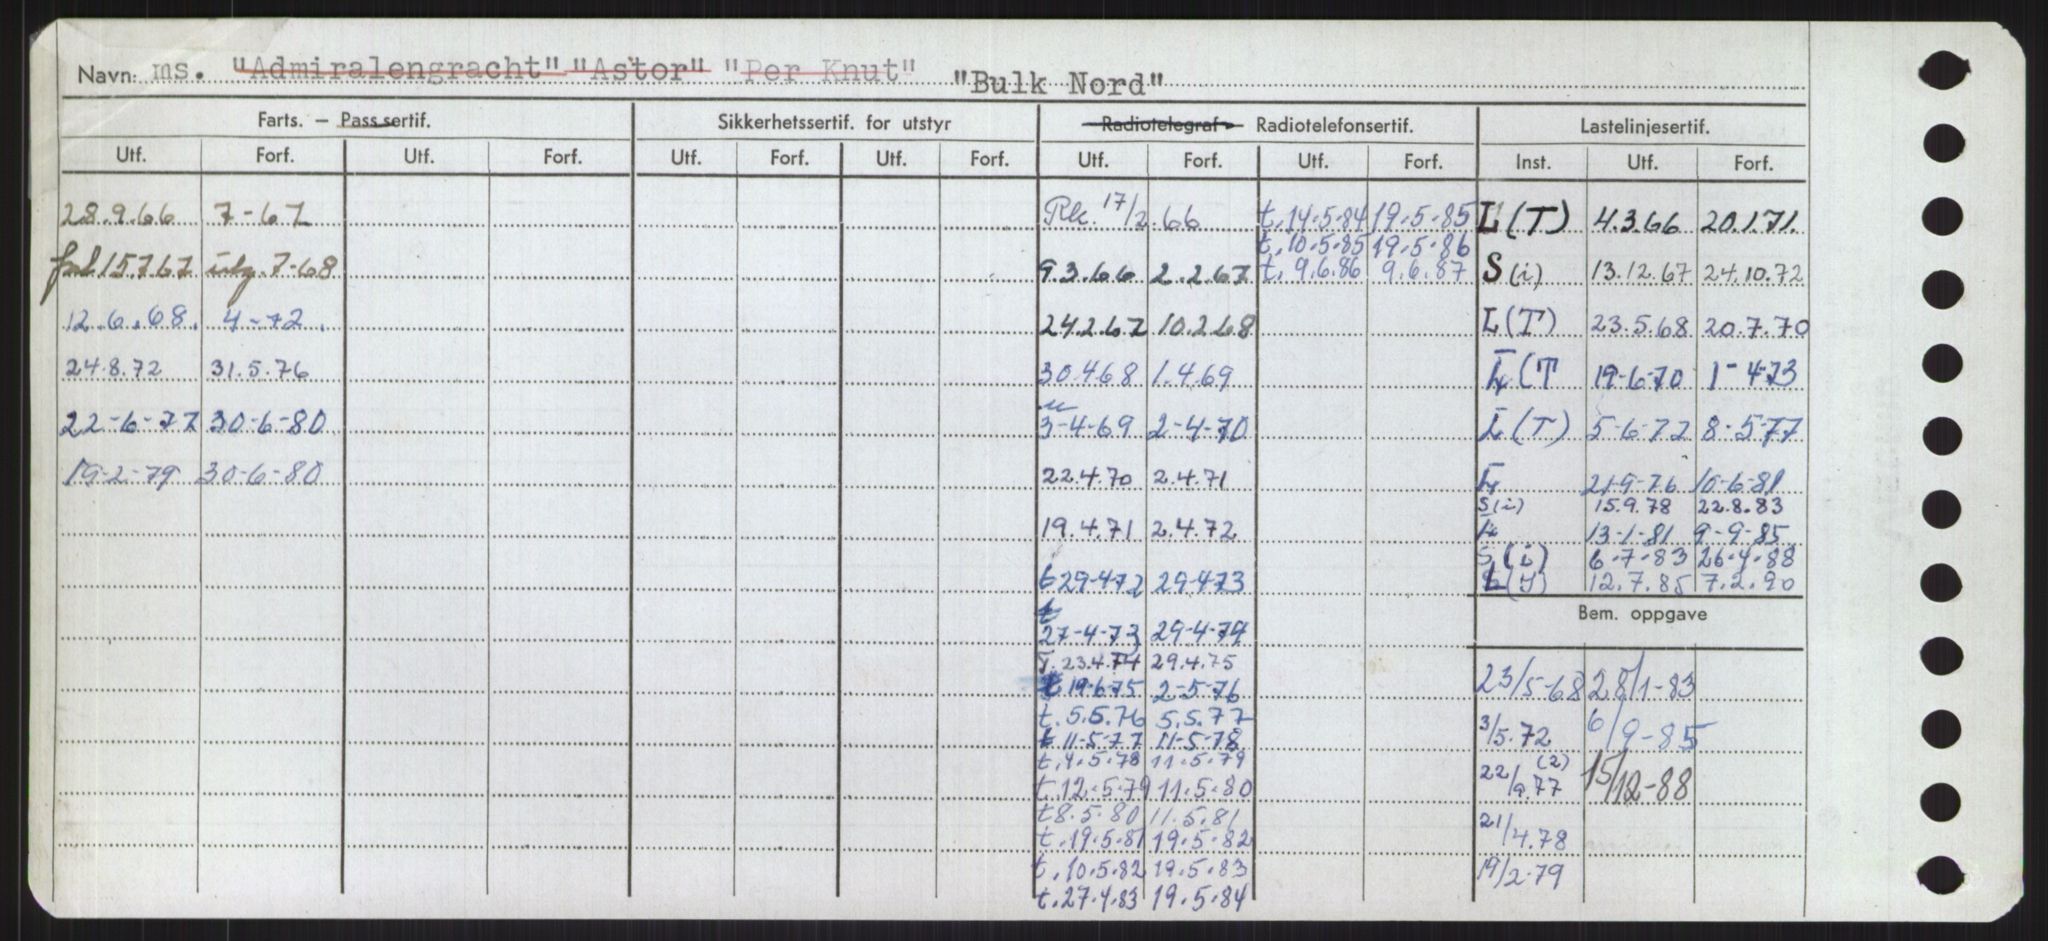 Navn: ms. "Admiralengracht" "Astor" "Per Knut" "Bulk Nord"
Farts. – Pass sertif. Sikkerhetssertif. for utstyr Radiotelegraf – Radiotelefonsertif. Lastelinjesertif.
Utf. Forf. Utf. Forf. Utf. Forf. Utf. Forf. Utf. Forf. Utf. Forf. Inst. Utf. Forf.
28.9.66 7-67 Rk. 17/2.66 t. 14.5.84 19.5.85 L(T) 4.3.66 20.1.71.
t. 10.5.85 19.5.86
15767 7-68 9.3.66 2.2.67 t. 9.6.86 9.6.87 S(i) 13.12.67 24.10.72
12.6.68. 4-72. 24.2.67 10.2.68 L(T) 23.5.68 20.7.70
24.8.72 31.5.76 30.4.68 1.4.69 L(T 19-6-70 1-4-73
22-6-77 30-6-80 3-4-69 2-4-70 L(T) 5-6-72 8-5-77
19-2-79 30-6-80 22.4.70 2.4.71 L 21-9-76 10-6-81
S(i) 15.9.78 22.8.83
19.4.71 2.4.72 L 13-1-81 9-9-85
S(i) 6.7.83 26.4.88
t 29-4-72 29-4-73 L(T) 12.7.85 7.2.90
t
Bem. oppgave
27-4-73 29-4-74
T. 23.4.74 29.4.75
t 19-6-75 2-5-76 23/5-68 28/1-83
t. 5.5.76 5.5.77
t 11-5-77 11-5-78 3/5.72 6/9-85
t. 4.5.78 11.5.79
t. 12.5.79 11.5.80 22/9.77 (2) 15/12-88
t 8.5.80 11.5.81
t. 19.5.81 19.5.82 21/4.78
t. 10.5.82 19.5.83 19/2.79
t. 27.4.83 19.5.84